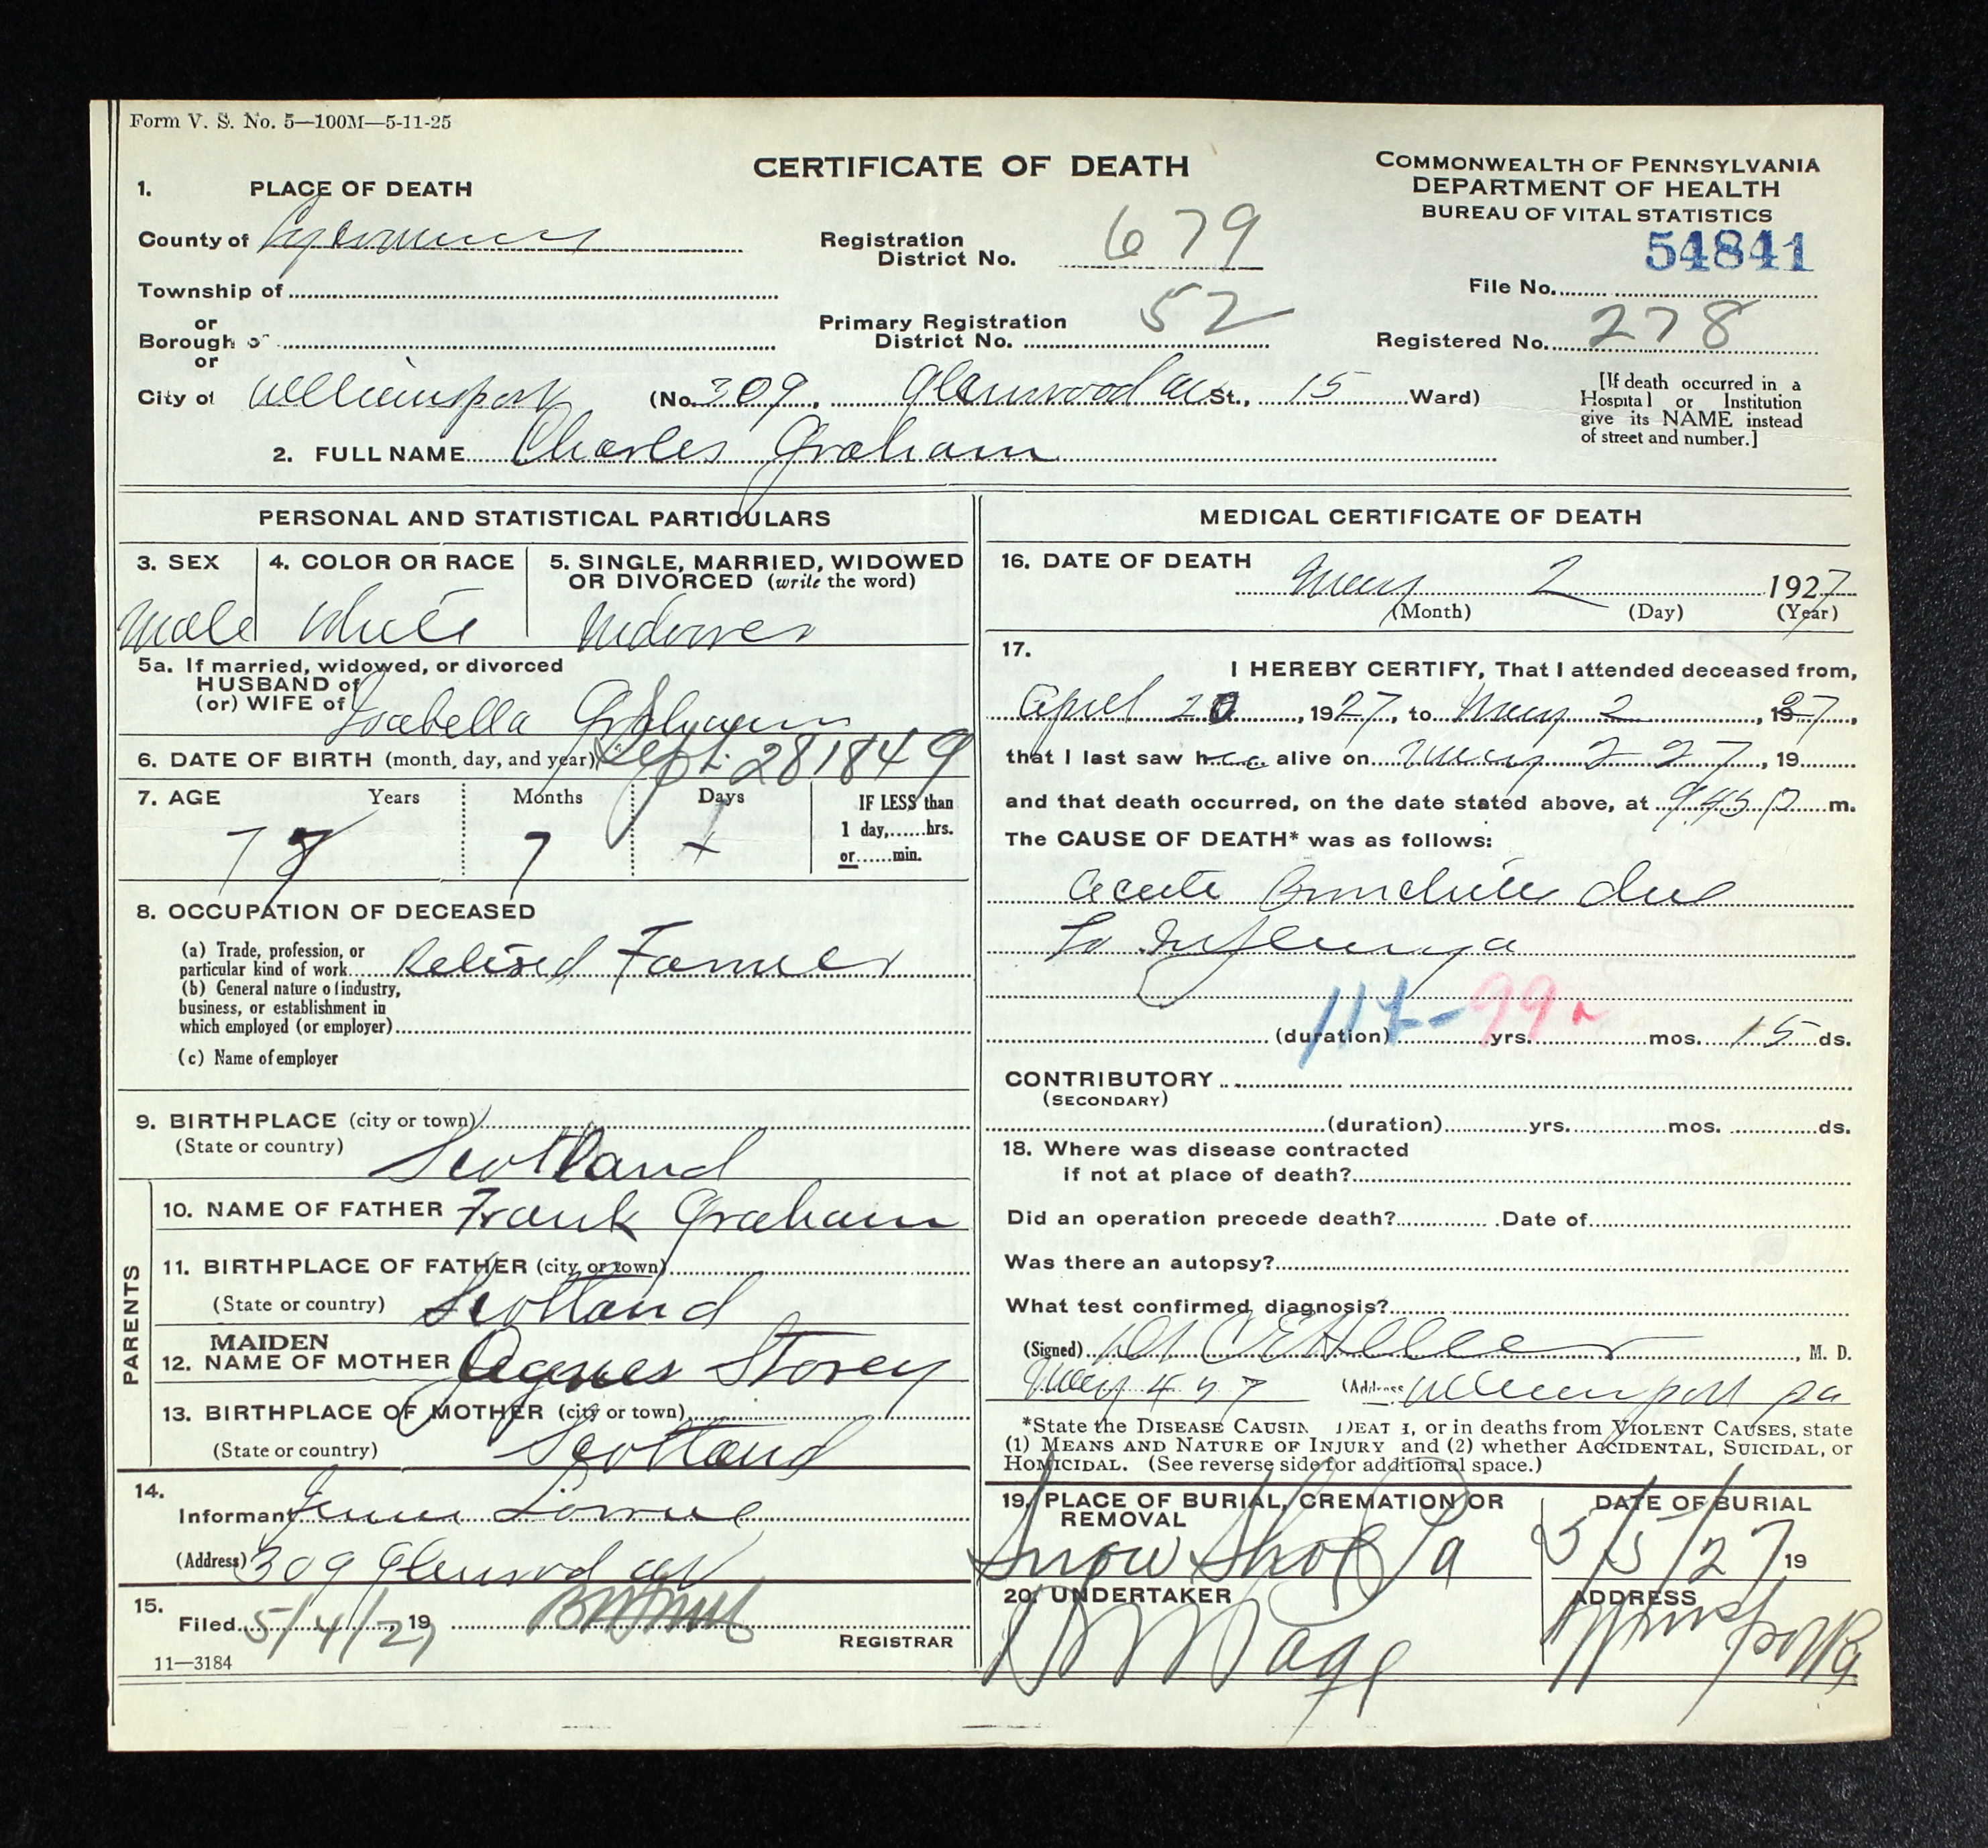 Form V. S. No. 5—100M—5-11-25
CERTIFICATE OF DEATH
COMMONWEALTH OF PENNSYLVANIA
DEPARTMENT OF HEALTH
BUREAU OF VITAL STATISTICS
1. PLACE OF DEATH
County of Lycoming
Registration District No. 679
54841
File No.
Township of
or
Borough of
or
Primary Registration District No. 52
Registered No. 278
City of Williamsport (No. 309, Glenwood Av St., 15 Ward)
[If death occurred in a Hospital or Institution give its NAME instead of street and number.]
2. FULL NAME Charles Graham
PERSONAL AND STATISTICAL PARTICULARS
3. SEX
Male
4. COLOR OR RACE
White
5. SINGLE, MARRIED, WIDOWED OR DIVORCED (write the word)
Widower
5a. If married, widowed, or divorced
HUSBAND of
(or) WIFE of Isabella Graham
6. DATE OF BIRTH (month, day, and year) Sept. 28 1849
7. AGE Years Months Days IF LESS than
1 day,......hrs.
or......min.
7 7
8. OCCUPATION OF DECEASED
(a) Trade, profession, or
particular kind of work Retired Farmer
(b) General nature of industry,
business, or establishment in
which employed (or employer)
(c) Name of employer
9. BIRTHPLACE (city or town)
(State or country) Scotland
PARENTS
10. NAME OF FATHER Frank Graham
11. BIRTHPLACE OF FATHER (city or town)
(State or country) Scotland
MAIDEN
12. NAME OF MOTHER Agnes Storey
13. BIRTHPLACE OF MOTHER (city or town)
(State or country) Scotland
14.
Informant
(Address) 309 Glenwood av
15.
Filed 5/4/27, 19
REGISTRAR
11—3184
MEDICAL CERTIFICATE OF DEATH
16. DATE OF DEATH
May 2 1927
(Month) (Day) (Year)
17.
I HEREBY CERTIFY, That I attended deceased from,
April 20, 1927, to May 2, 1927,
that I last saw him alive on May 2 27, 19
and that death occurred, on the date stated above, at 945 P m.
The CAUSE OF DEATH* was as follows:
Acute Bronchitis due
to Influenza
11 99a
(duration) yrs. mos. 15 ds.
CONTRIBUTORY
(SECONDARY)
(duration) yrs. mos. ds.
18. Where was disease contracted
if not at place of death?
Did an operation precede death? Date of
Was there an autopsy?
What test confirmed diagnosis?
(Signed) , M. D.
May 4 27 (Address Williamsport Pa
*State the DISEASE CAUSIN DEAT I, or in deaths from VIOLENT CAUSES, state
(1) MEANS AND NATURE OF INJURY and (2) whether ACCIDENTAL, SUICIDAL, or
HOMICIDAL. (See reverse side for additional space.)
19. PLACE OF BURIAL, CREMATION OR
REMOVAL
Snow Shoe Pa
DATE OF BURIAL
5/5/27 19
20. UNDERTAKER
Page
ADDRESS
Wmsport Pa